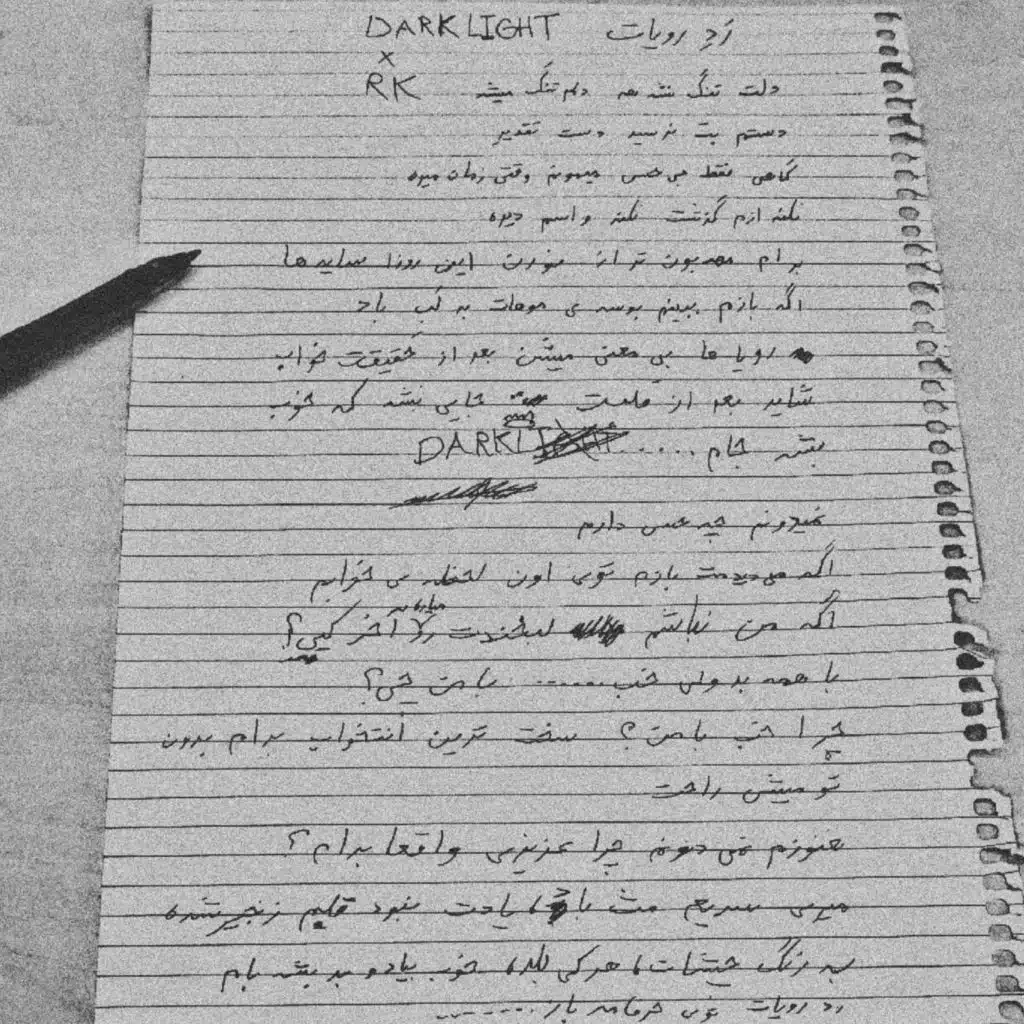 رَدِ رویات DARKLIGHT
x
RK
دلت تنگ نشه هه دلم تنگ میشه
دستم بت نرسید دست تقدیر
گاهی فقط بی حس میمونم وقتی زمان میره
نکنه ازم گذشت نکنه واسم دیره
برام مهربون تر از این روزا سایه ها
اگه بازم ببینم بوسه ی موهات به لب باد
رویا ها بی معنی میشن بعد از حقیقت خواب
شاید بعد از قلبت جایی نشه که خوب
بشه جام ..... DARKLI
نمیدونم چه حسی دارم
اگه میدیدمت بازم توی اون لحظه ی خوابم
اگه من نباشم لبخندت رو میاره آخر کی؟
با همه بد ولی خب...... با من چی؟
چرا خب با من؟ سخت ترین انتخواب برام بدون
تو میشی راحت
هنوزم نمی دونم چرا عزیزی واقعا برام؟
میری سریع مث باد، یادت نبود قلبم زنجیر شده
به رنگ چشات، هر کی بلده خوب بیاد و بد بشه بام
رد رویات توی خرمامه باز........